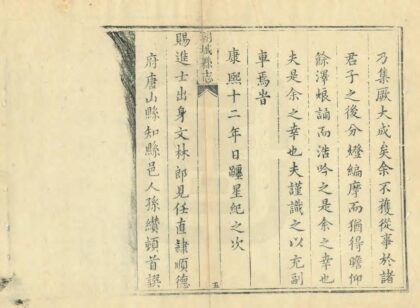 乃集厥大成矣余不獲從事於諸
君子之後分燈編摩而猶得瞻仰
餘澤誦而浩吟之是余之幸也
夫是余之幸也夫謹識之以充副
車焉旹
康熙十二年日躔星紀之次
城縣志
五
賜進士出身文林郎見任直隸順德
府唐山縣知縣邑人孫纘頓首譔